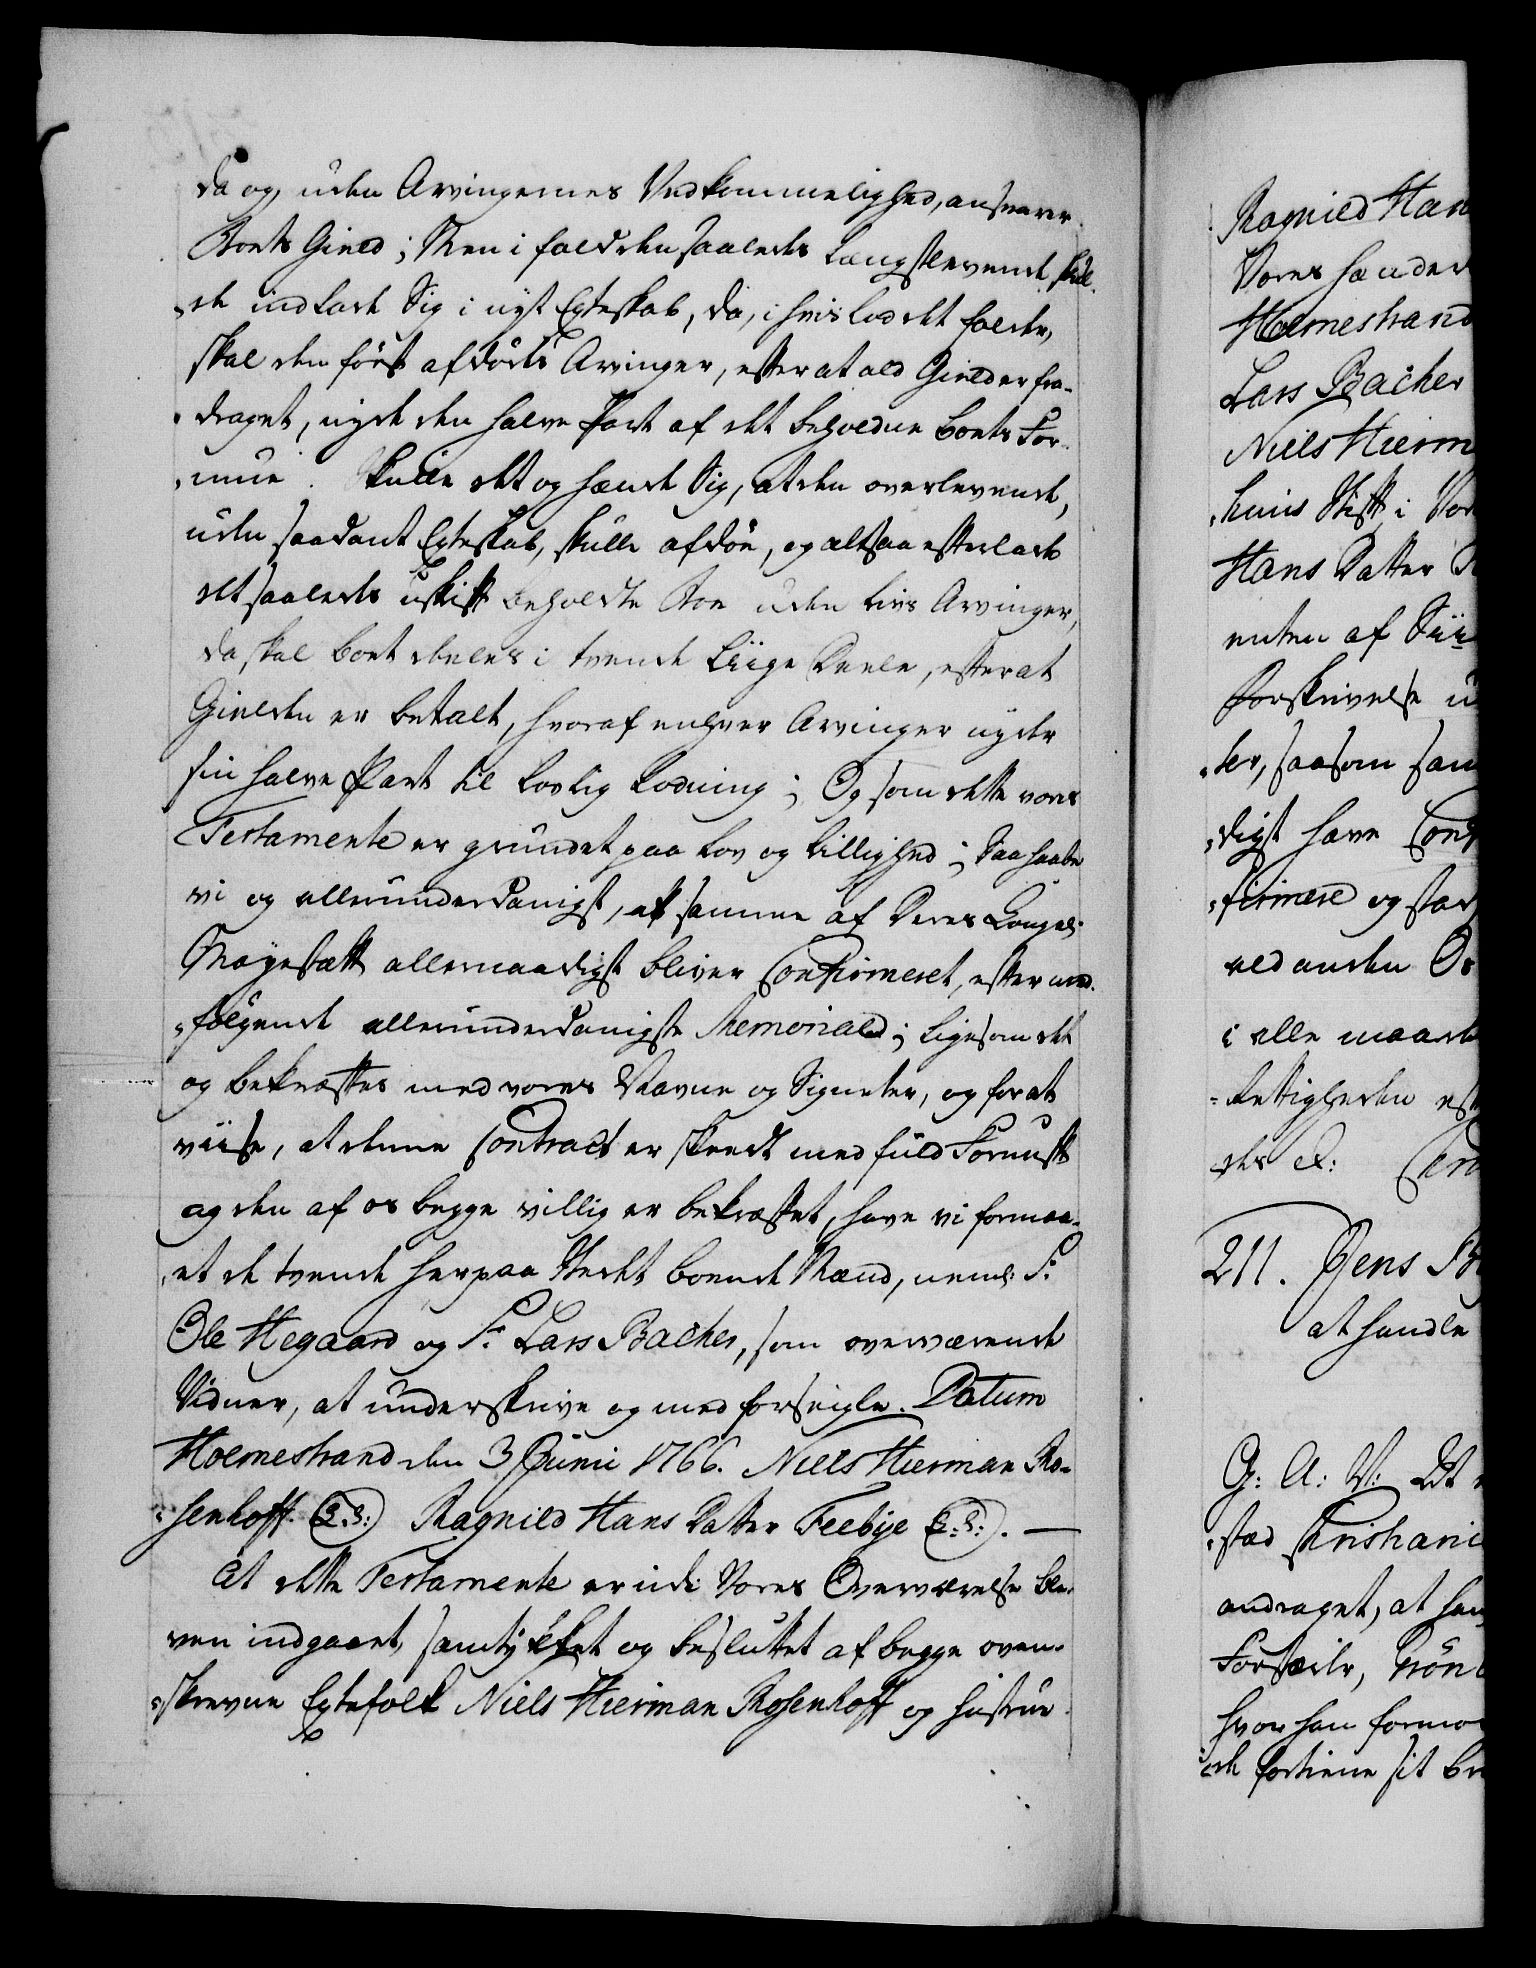 da og, uden Arvingernes Vedkommelighed, ansvarer
Boets Gield; Men i fald den saaledes Længstlevende skul-
de indlade Sig i nyt Egteskab, da, i hvis led det falder,
skal den først afdødes Arvinger, efter at ald Gield er fra-
draget, nyde den halve Part af det beholdne Boets For-
mue. Skulle det og hænde Sig, at den overlevende,
uden saadant Egteskab, skulle afdöe, og altsaa efterlade
det saaledes uskift beholdte Boe uden Livs Arvinger,
da skal Boet deeles i tvende Liige Deele, efter at
Gielden er betalt, hvoraf enhver Arvinger nyder
sin halve Part til lovlig Lodning; Og som dette vores
Testamente er grundet paa Lov og billighed; Saa haabe
vi og allerunderdanigst, at samme af Deres Kongel:
Mayestætt allernaadigst bliver Confirmeret, efter med-
fölgende allerunderdanigste Memorial; ligesom det
og bekræftes med vores Navne og Signeter, og for at
viise, at denne Contract er skeedt med fuld Fornuft
og den af os begge villig er bekræftet, have vi formaa-
et de tvende her paa Stedet boende Mænd, neml: Sr.
Ole Hegaard og Sr. Lars Bacher, som overværende
Vidner, at underskrive og med forseigle. Datum
Holmestrand den 3 Junii 1766. Niels Hierman Ro-
senhoff (L.S.) Ragnild Hans Datter Feebye (L.S.). —
At dette Testamente er udi Vores Overværelse ble-
ven indgaaet, samtykket og besluttet af begge oven-
skrevne Egtefolk Niels Hierman Rosenhoff og hustrue
Ragnild Han
Vores hænder
Holmestrand
Lars Bacher
Niels Hierm
huus Stift i Vor
Hans Datter
enten af Sii
Forskrivelse u
der, saasom sam
digst have Con
firmere og stad
alanden
i alle maade
Rettigheden eft
des &:
211. Jens
at handle
G: A: V: At
stad Christiani
andraget, at han
Forstæder, Grön
hvor han formo
de fortiene sit Br